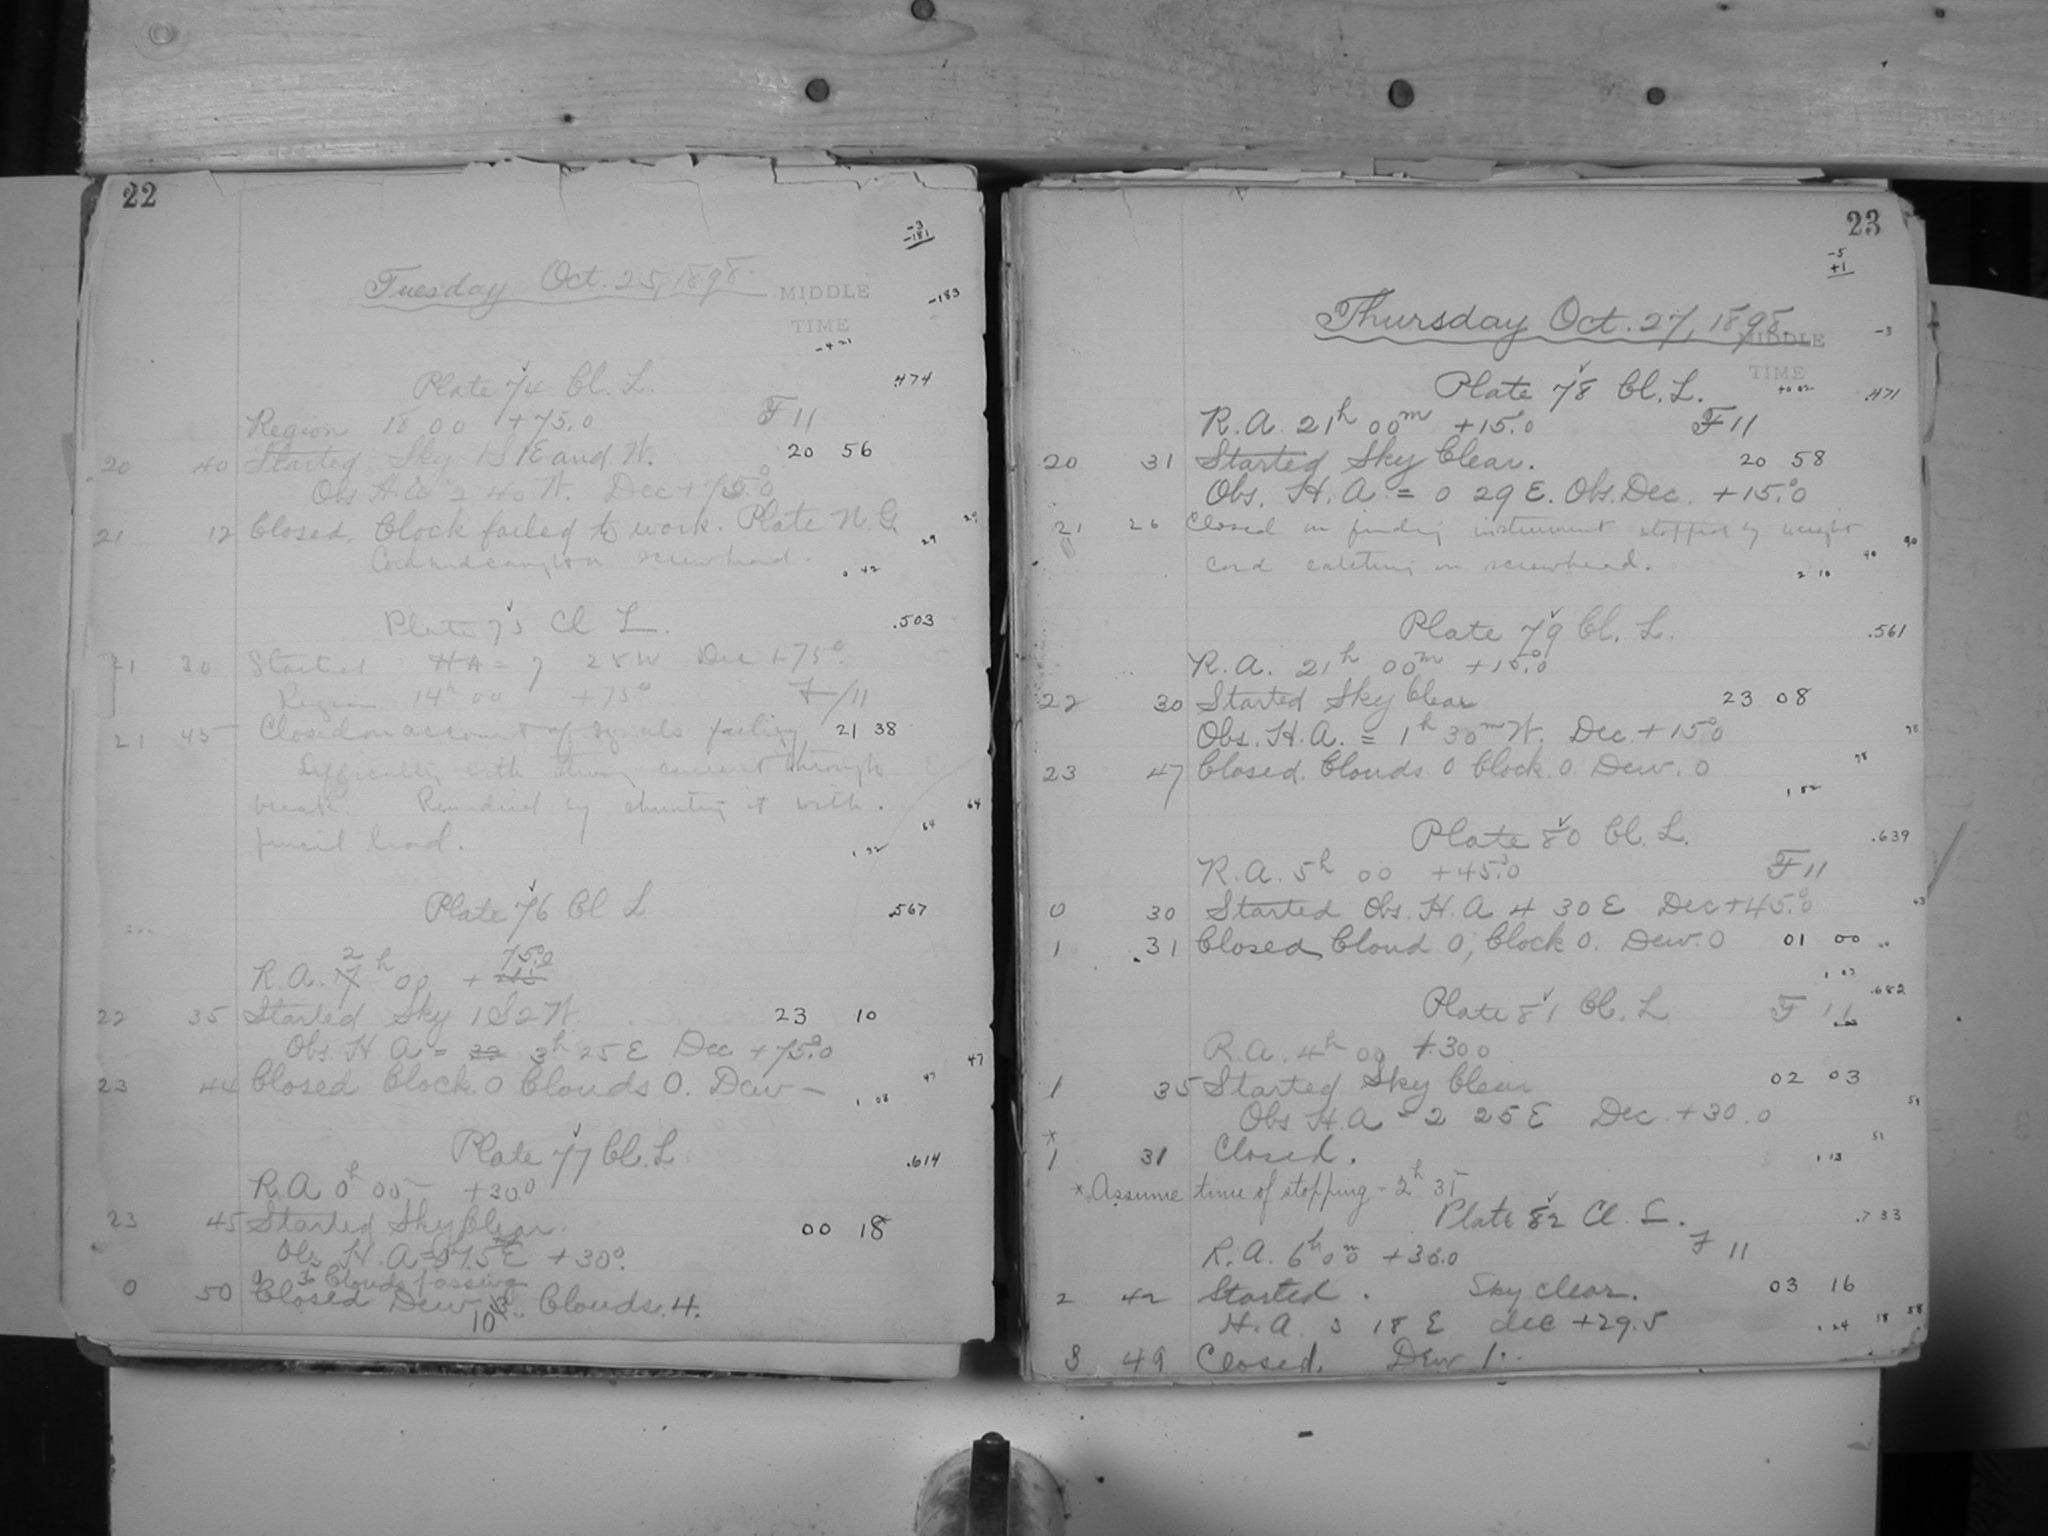 22
-3
-181
Tuesday Oct. 25, 1898.
MIDDLE
-183
TIME
-4 21
Plate 74 Cl. L.
.474
Region 18 00 +75.0 F 11
20 40 Started Sky 1S 1E and W. 20 56
Obs H.A 2 40 W. Dec +75°.0
21 12 Closed. Clock failed to work. Plate N.G.
29
29
Cord screwhead.
0 42
Plate 75 Cl L.
.503
21 30 Started HA = 7 28 W Dec +75°
Region 14h 00 +75° F/11
21 45 Closed on account of signals failing 21 38
Difficulty with current through
break. Remedied by shunting it with
64
pencil lead.
64
1 32
Plate 76 Cl L
.567
2 75°.0
R.A. 17 h 00 +
22 35 Started Sky 1S2W 23 10
Obs. H A = 3h 25 E Dec +75°.0
47
23 44 Closed Clock 0 Clouds 0. Dew —
47
1 08
Plate 77 Cl. L
.614
R.A 0h 00m +30°.0
23 45 Started Sky Clear. 00 18
Obs H.A = E +30°.
Clouds passing
0 50 Closed Dew Clouds. 4.
10
23
-5
+1
Thursday Oct. 27, 1898.
-3
MIDDLE
TIME
Plate 78 Cl. L.
+0 02
.471
R.A. 21h 00m +15°.0 F 11
20 31 Started Sky Clear. 20 58
Obs. H.A. = 0 29 E. Obs. Dec. +15°.0
21 26 Closed on finding instrument stopped by weight
90
cord catching on screwhead.
90
2 10
Plate 79 Cl. L.
.561
R.A. 21h 00m +15°.0
22 30 Started Sky Clear 23 08
Obs. H.A. = 1h 30m W. Dec. +15°.0
78
23 47 Closed. Clouds 0 Clock. 0. Dew. 0
78
1 52
Plate 80 Cl. L.
.639
R.A. 5h 00 +45°.0 F 11
0 30 Started Obs. H.A 4 30 E Dec +45°.0
43
1 31 Closed Cloud 0, Clock 0. Dew. 0 01 00
1 03
.682
Plate 81 Cl. L F 11
R.A. 4h 00 +30 0
1 35 Started Sky Clear 02 03
Obs H.A = 2 25 E Dec. +30.0
51
*
51
1 31 Closed.
1 13
* Assume time of stopping - 2h 31m
Plate 82 Cl. L.
.733
R.A. 6h 00m +30.0 F 11
2 42 Started. Sky clear. 03 16
H.A. 3 18 E dec +29.5
58
58
1 24
3 49 Closed. Dew 1.